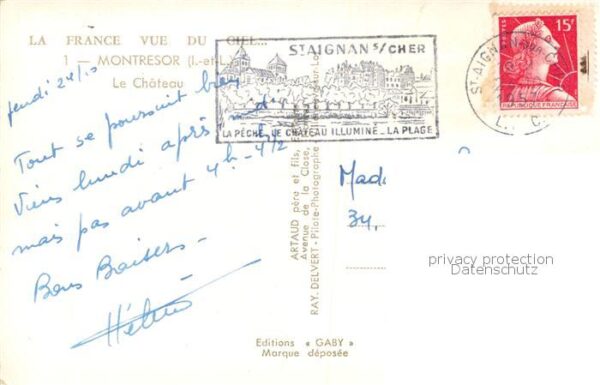 LA FRANCE VUE DU CIEL...
1 — MONTRESOR (I.-et-L.)
Le Château
jeudi 24/10
Tout se poursuit bien
Viens lundi après m di
mais pas avant 4h - 4 1/2
Bons Baisers -
ST AIGNAN S/ CHER
LA PÊCHE _ LE CHATEAU ILLUMINÉ _ LA PLAGE
15F
POSTES
REPUBLIQUE FRANÇAISE
ARTAUD père et fils,
Avenue de la Close,
RAY. DELVERT - Pilote-Photographe
Mad
34,
privacy protection
Datenschutz
Editions « GABY »
Marque déposée